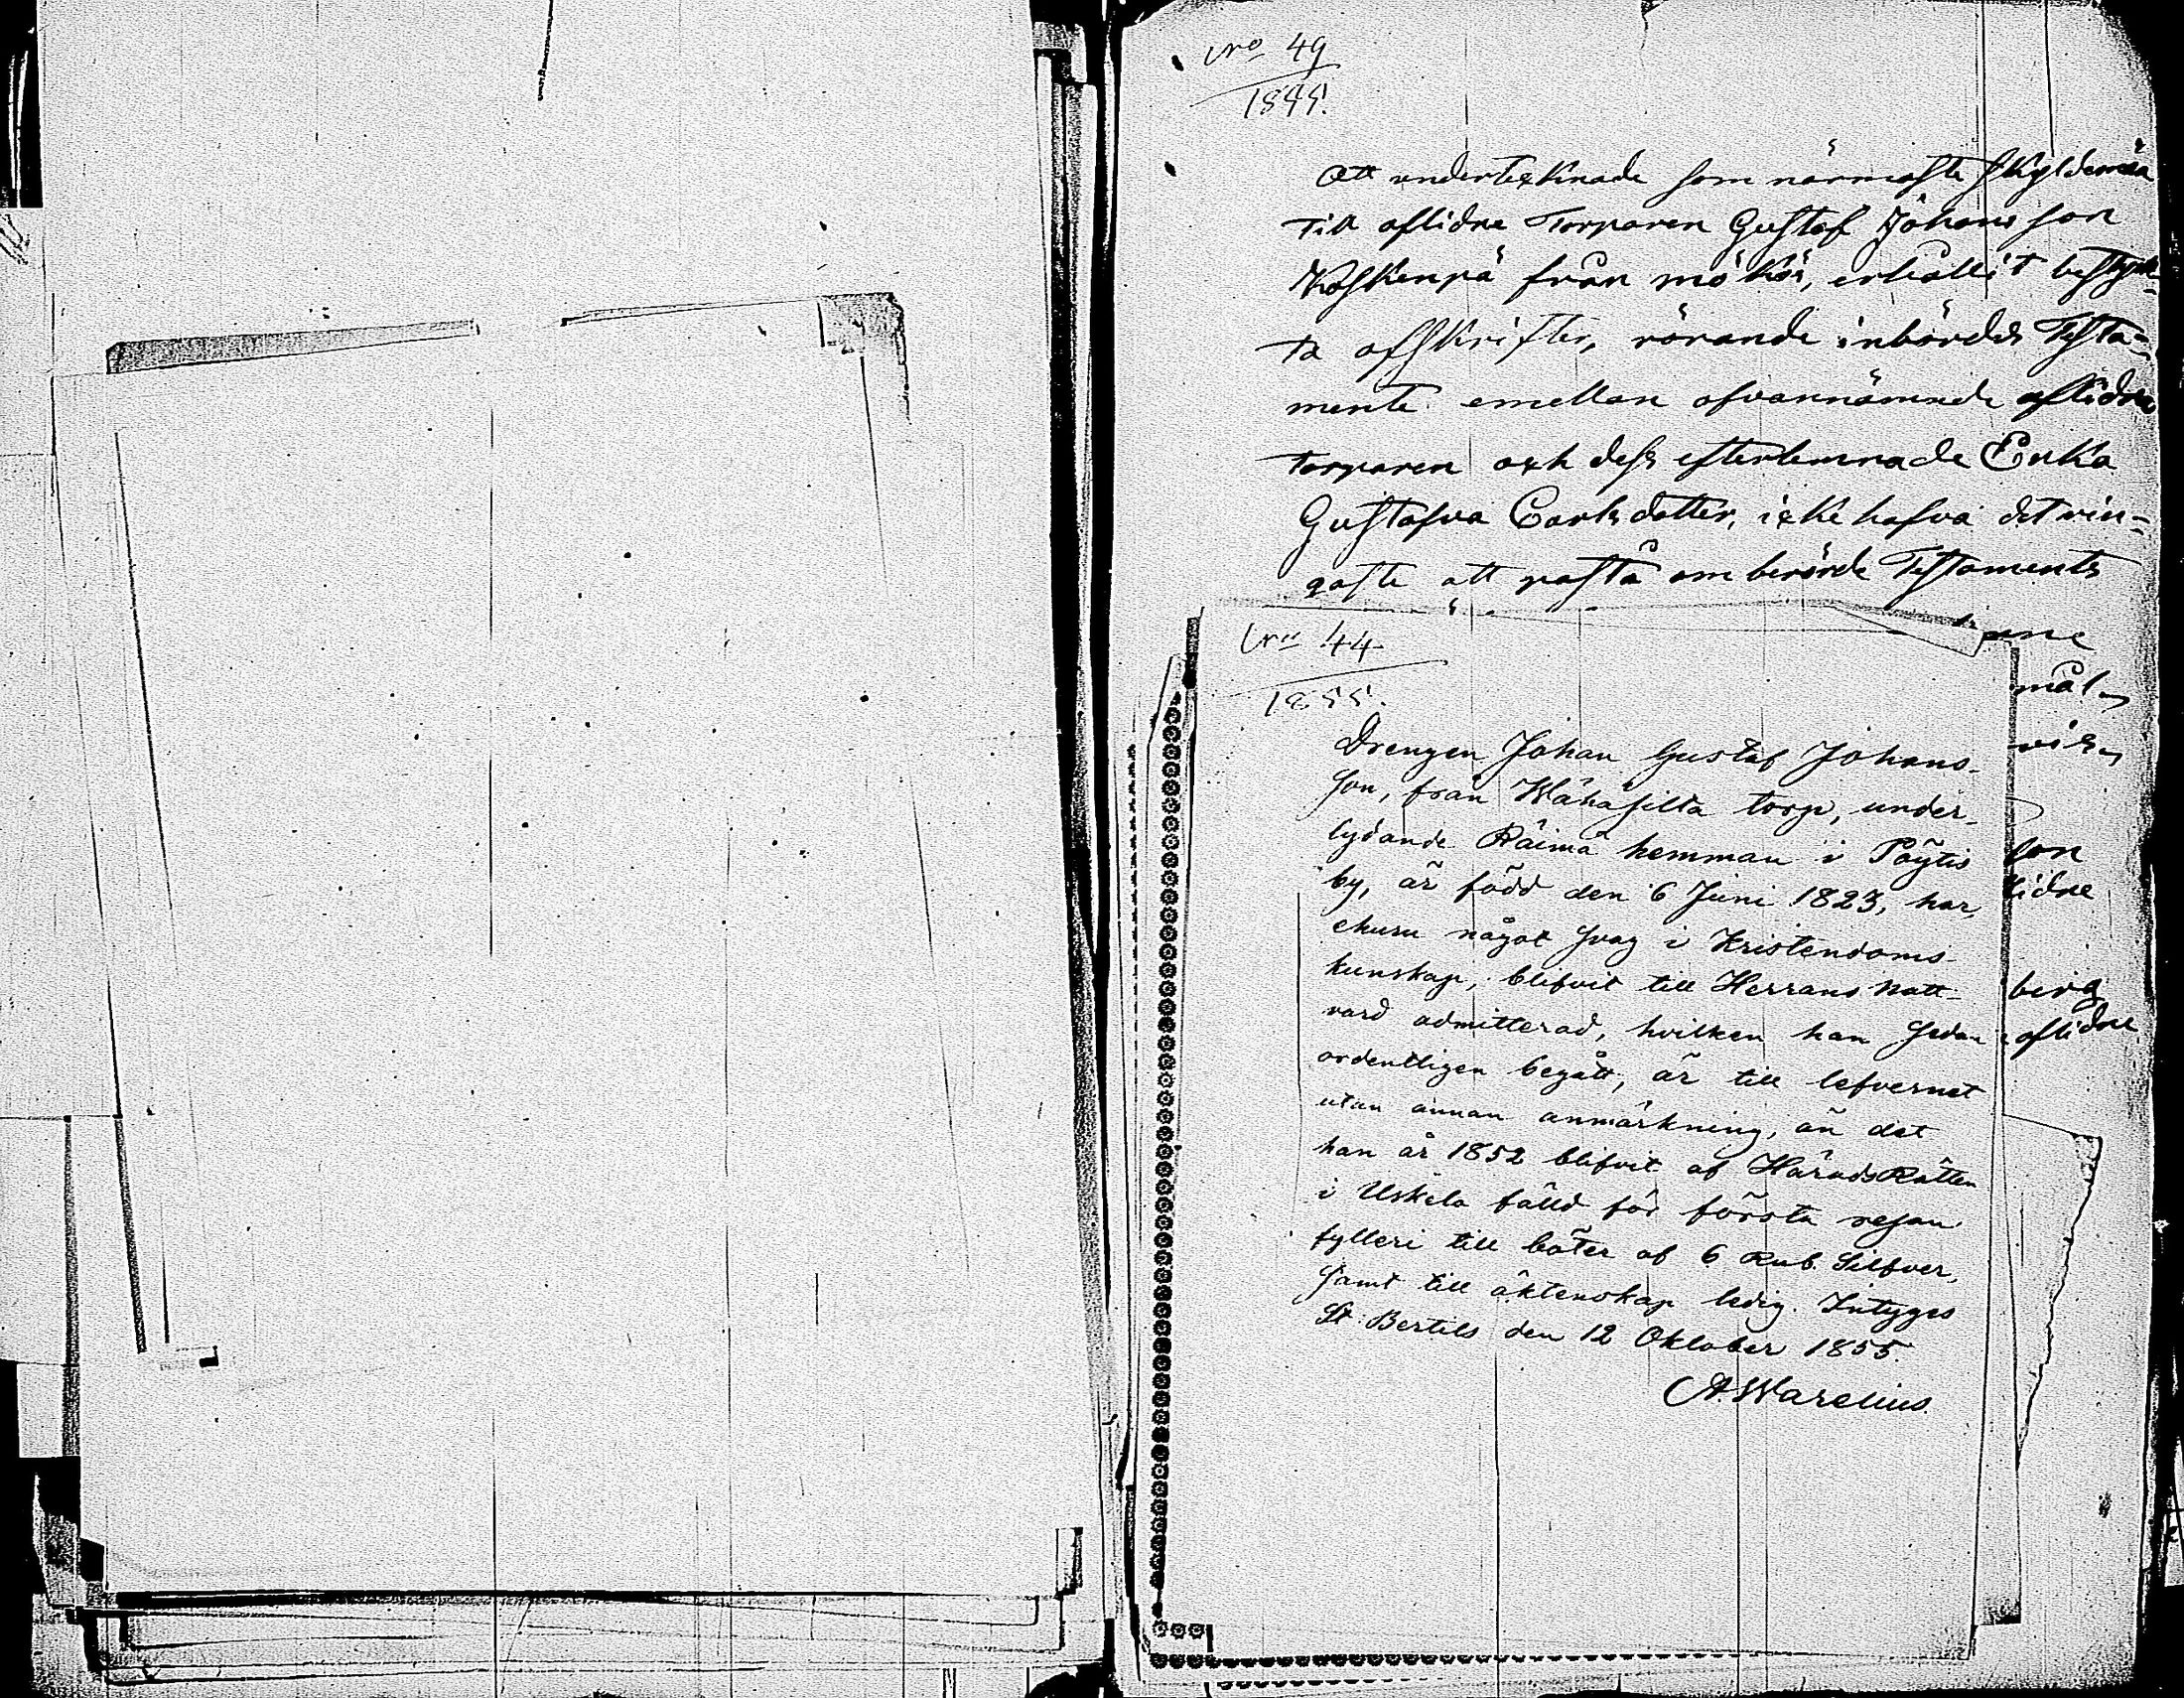 No 49
1855.
Att undertecknade som närmaste skyldemän
till aflidne Torparen Gustaf Johansson
Koskenpä från mökör, erhållit bestyrk-
ta afskrifter, rörande inbördes Testa-
mente emellan ofvannämnde aflidne
torparen och dess efterlemnade Enka
Gustafva Carlsdotter, icke hafva det rin-
gaste att påstå om berörde Testaments
nne
mål
son
lidne
berg
aflidne
No 44
1855.
Drengen Johan Gustaf Johans-
son, från Wähäsilta torp, under-
lydande Räimä hemman i Pöytis
by, är född den 6 Juni 1823, har,
ehuru något svag i Kristendoms-
kunskap, blifvit till Herrans Natt-
vard admitterad, hvilken han sedan
ordentligen begått, är till lefvernet
utan annan anmärkning, än det
han år 1852 blifvit af HäradsRätten
i Uskela fälld för första resan
fylleri till böter af 6 Rub. Silfver,
samt till äktenskap ledig. Intygas
St Bertils den 12 Oktober 1855.
A. Warelius.